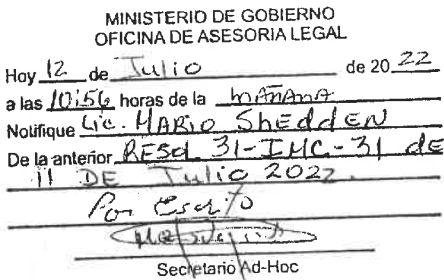 MINISTERIO DE GOBIERNO
OFICINA DE ASESORIA LEGAL
Hoy 12 de Julio de 20 22
a las 10:56 horas de la mañana
Notifique Lic. MARIO SHEDDEN
De la anterior RESOL 31-IMC-31 dE
11 DE Julio 2022.
Por Escrito
Secretario Ad-Hoc